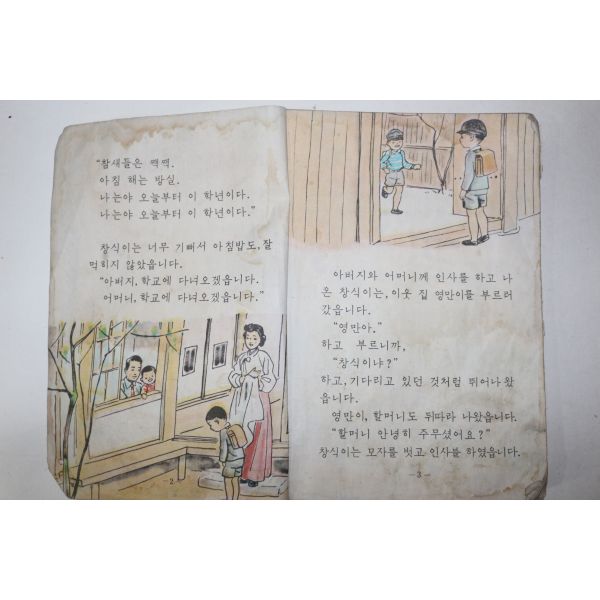 "참새들은 짹짹.
아침 해는 방실.
나는야 오늘부터 이 학년이다.
나는야 오늘부터 이 학년이다."
창식이는 너무 기뻐서 아침밥도, 잘
먹히지 않았읍니다.
"아버지, 학교에 다녀오겠읍니다.
어머니, 학교에 다녀오겠읍니다."
-2-
아버지와 어머니께 인사를 하고 나
온 창식이는, 이웃 집 영만이를 부르러
갔읍니다.
"영만아."
하고 부르니까,
"창식이냐?"
하고, 기다리고 있던 것처럼 뛰어나왔
읍니다.
영만이, 할머니도 뒤따라 나왔읍니다.
"할머니 안녕히 주무셨어요?"
창식이는 모자를 벗고 인사를 하였읍니다.
-3-